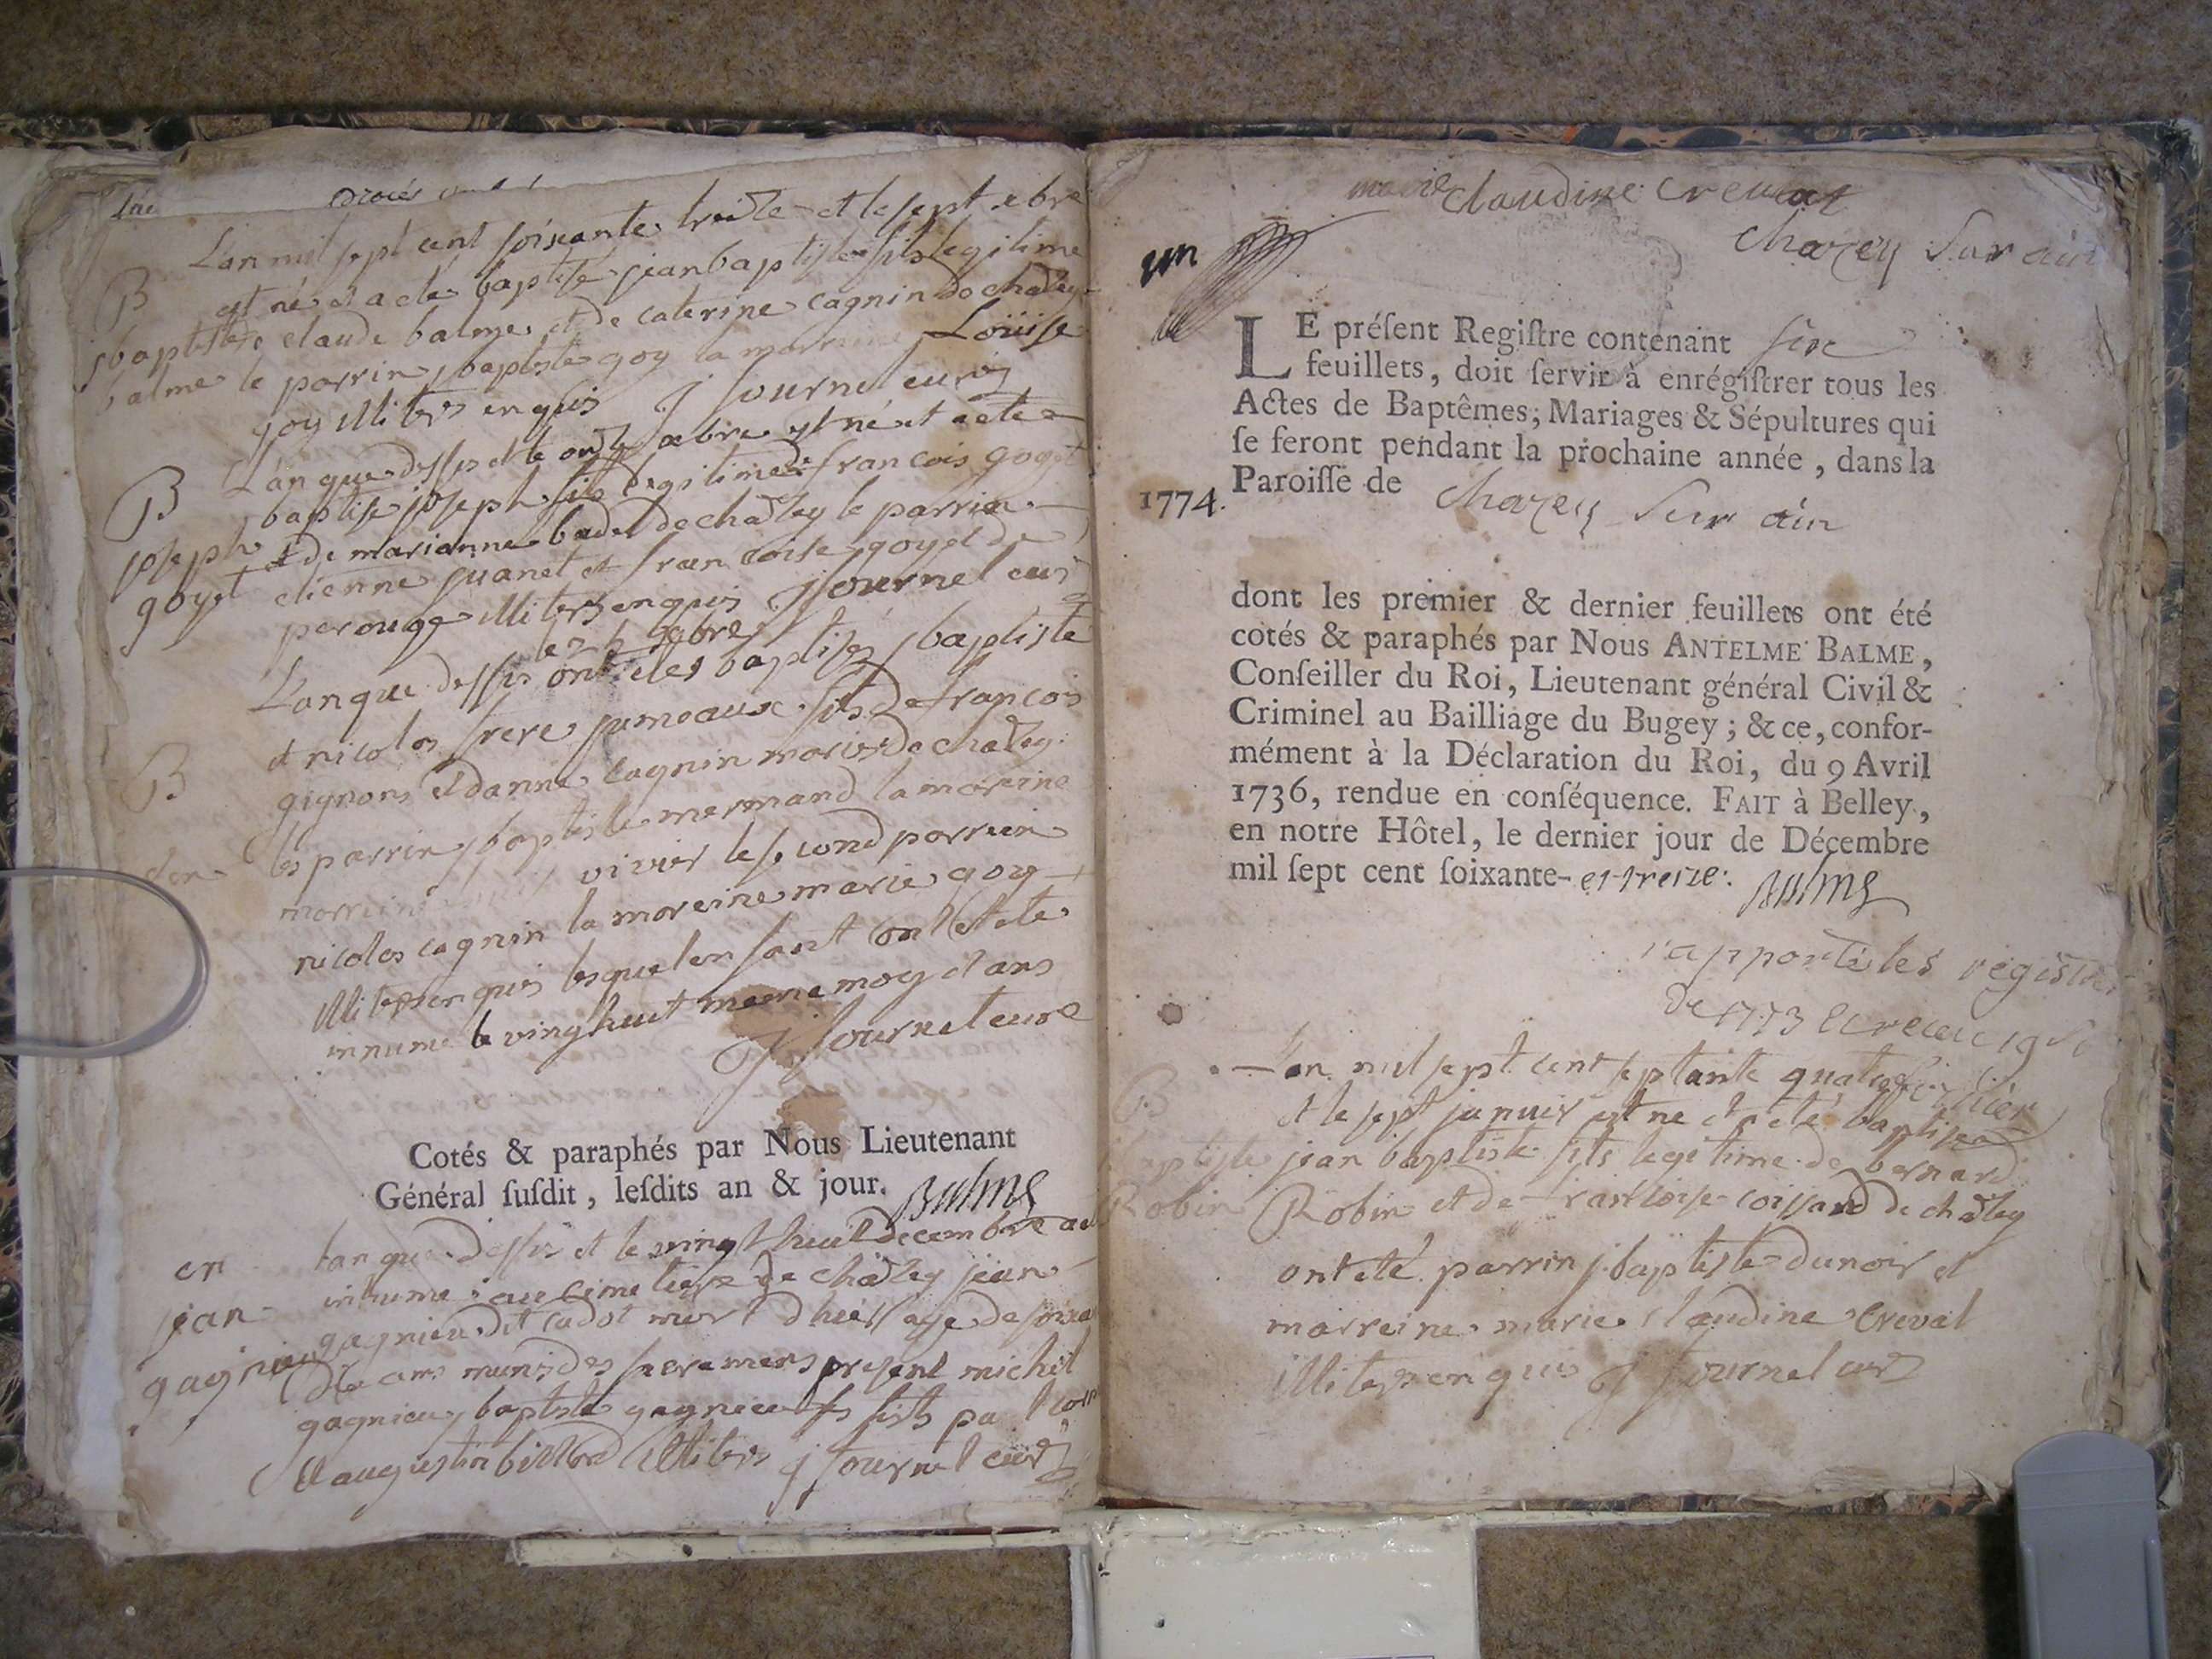 L'an mil sept cent soixante treize et le sept xbre
B est né et a eté baptisé jean baptiste fils legitime
jbaptiste de claude balme et de caterine cagnin de chazey
balme le parrin jbaptiste goy la marreine Loüise
goy illiters enquis J fournel curé
L'an que dessus et le onze xbre est né et a eté
B baptisé joseph fils legitime de francois goyet
joseph et de marianne badel de chazey le parrin
goyet etienne juanet et francoise goyet de
perouge illiters enquis J fournel curé
les 9bre
L'an que dessus ont etes baptisés jbaptiste
et nicolas frere jumeaux fils de francois
B gignons et danne cagnin mariés de chazey
les parrin jbaptiste mermand la mareine
vivier le second parrein
nicolas cagnin la mareine marie goy
illiters enquis lesquels enfant ont eté
innume le vinghuit meme moy et ans
J fournel curé
Cotés & paraphés par Nous Lieutenant
Général susdit, lesdits an & jour. Balme
en lan que dessus et le vingt huit decembre a eté
jan inhumé au cimetiere de chazey jean
gagnieu gagnieu dit cadot mort d'hier agé de
dix ans munis des sacremens present michel
gagnieu jbaptiste gagnieu ses fils
et augustin illiters J fournel curé
marie Claudine Creuat
Chazey Sur ain
un
LE préſent Regiſtre contenant six
feuillets, doit ſervir à enrégiſtrer tous les
Actes de Baptêmes, Mariages & Sépultures qui
ſe feront pendant la prochaine année, dans la
1774. Paroiſſe de Chazey Sur ain
dont les premier & dernier feuillets ont été
cotés & paraphés par Nous ANTELME BALME,
Conſeiller du Roi, Lieutenant général Civil &
Criminel au Bailliage du Bugey ; & ce, confor-
mément à la Déclaration du Roi, du 9 Avril
1736, rendue en conſéquence. FAIT à Belley,
en notre Hôtel, le dernier jour de Décembre
mil ſept cent ſoixante- et treize. Balme
rapporté les registres
de 1773
L'an mil sept cent septante quatre
B et le sept januier est né et a eté baptisé
baptiste jean baptiste fils legitime de bernard
Robin Robin et de francoise coissard de chazey
ont eté parrin j.baptiste dunoir et
marreine marie claudine Creval
illiters enquis J fournel curé